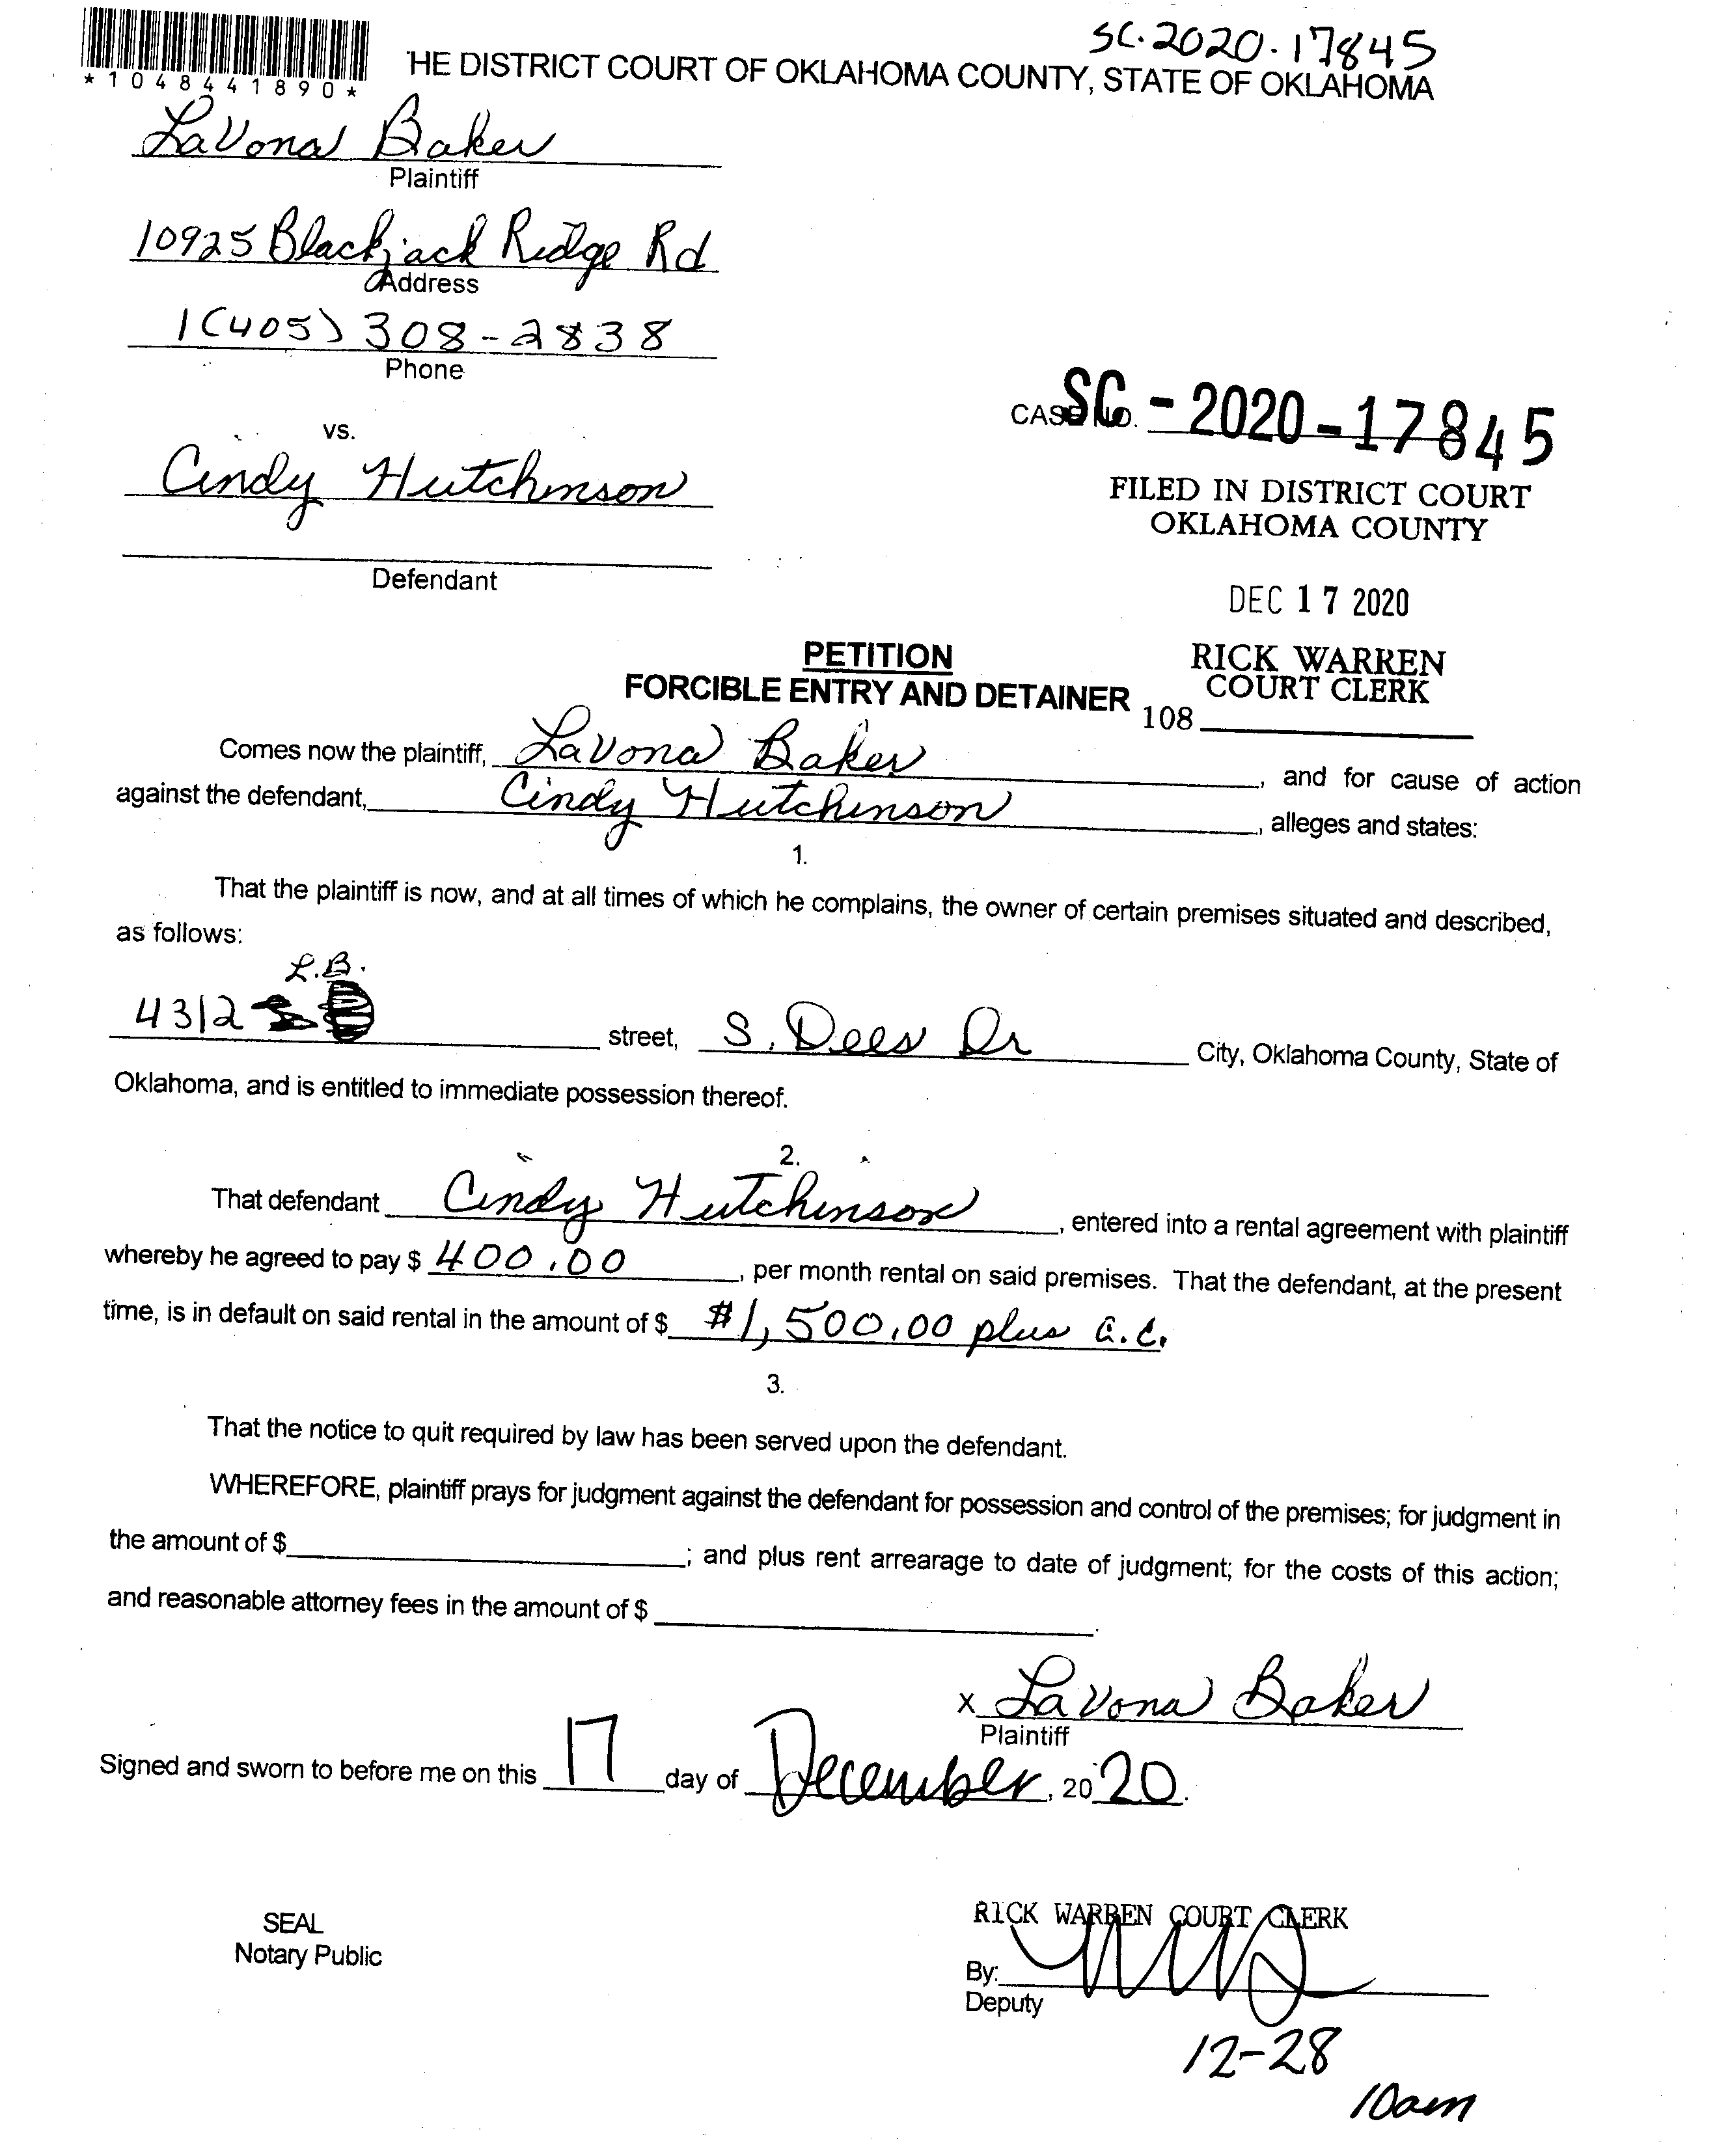 SC-2020-17845
*1048441890*
HE DISTRICT COURT OF OKLAHOMA COUNTY, STATE OF OKLAHOMA
LaVona Baker
Plaintiff
10925 Blackjack Ridge Rd
Address
1(405) 308-2838
Phone
CASE NO. SC-2020-17845
vs.
Cindy Hutchinson
FILED IN DISTRICT COURT
OKLAHOMA COUNTY
Defendant
DEC 17 2020
PETITION
RICK WARREN
COURT CLERK
FORCIBLE ENTRY AND DETAINER
108
Comes now the plaintiff, LaVona Baker, and for cause of action
against the defendant, Cindy Hutchinson, alleges and states:
1.
That the plaintiff is now, and at all times of which he complains, the owner of certain premises situated and described,
as follows:
L.B.
4312 street, S. Dees Dr City, Oklahoma County, State of
Oklahoma, and is entitled to immediate possession thereof.
2.
That defendant Cindy Hutchinson, entered into a rental agreement with plaintiff
whereby he agreed to pay $ 400.00, per month rental on said premises. That the defendant, at the present
time, is in default on said rental in the amount of $ $1,500.00 plus a.c.
3.
That the notice to quit required by law has been served upon the defendant.
WHEREFORE, plaintiff prays for judgment against the defendant for possession and control of the premises; for judgment in
the amount of $ ; and plus rent arrearage to date of judgment; for the costs of this action;
and reasonable attorney fees in the amount of $ .
x LaVona Baker
Plaintiff
Signed and sworn to before me on this 17 day of December, 2020.
SEAL
Notary Public
RICK WARREN COURT CLERK
By:
Deputy
12-28
10am